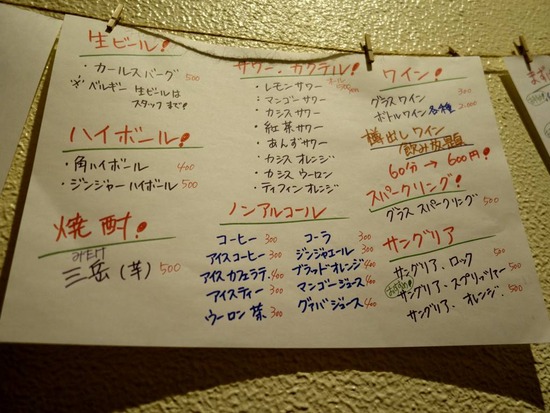 生ビール!
・カールスバーグ 500
※ベルギー生ビールは
スタッフまで!
ハイボール!
・角ハイボール 400
・ジンジャーハイボール 500
焼酎!
三岳(芋) 500
サワー、カクテル!
・レモンサワー
・マンゴーサワー
・カシスサワー
・紅茶サワー
・あんずサワー
・カシスオレンジ
・カシスウーロン
・ティフィンオレンジ
ノンアルコール
コーヒー 300
アイスコーヒー 300
アイスカフェラテ 400
アイスティー 300
ウーロン茶 300
コーラ 300
ジンジャエール 300
ブラッドオレンジ 400
マンゴージュース 400
グァバジュース 400
ワイン!
グラスワイン 300
ボトルワイン各種 2,000
樽出しワイン
飲み放題
60分→600円!
スパークリング!
グラススパークリング 500
サングリア
サングリア、ロック 500
おすすめ サングリア、スプリッツァー 500
サングリア、オレンジ 500